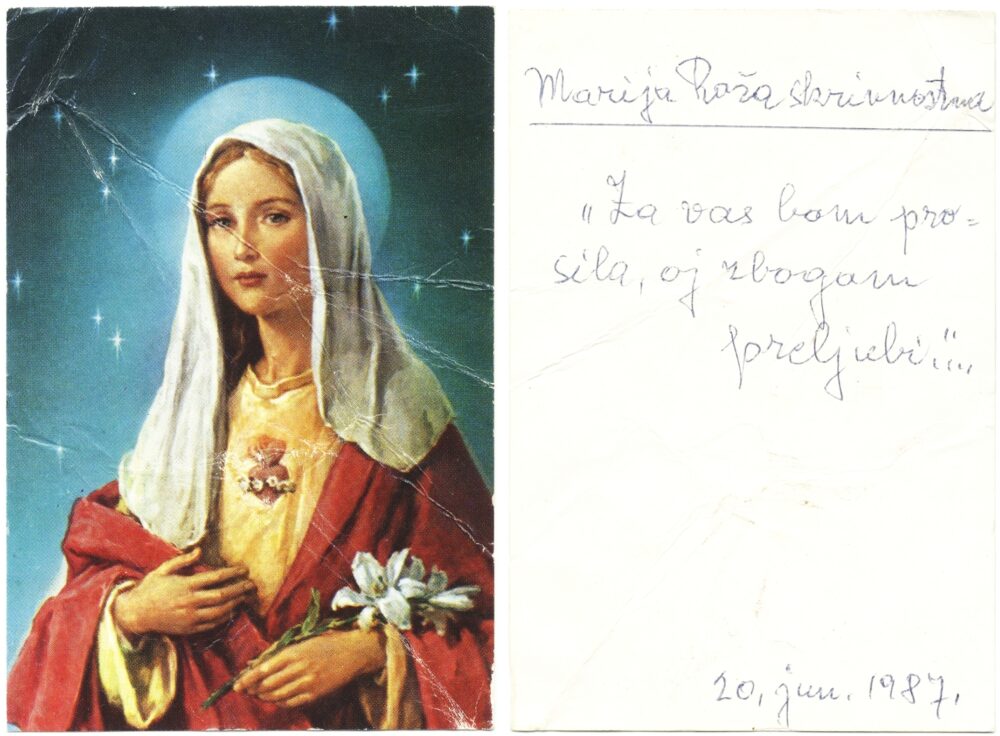 Marija Roža skrivnostna
„Za vas bom pro=
sila, oj zbogom
preljubi!"...
20. jun. 1987.